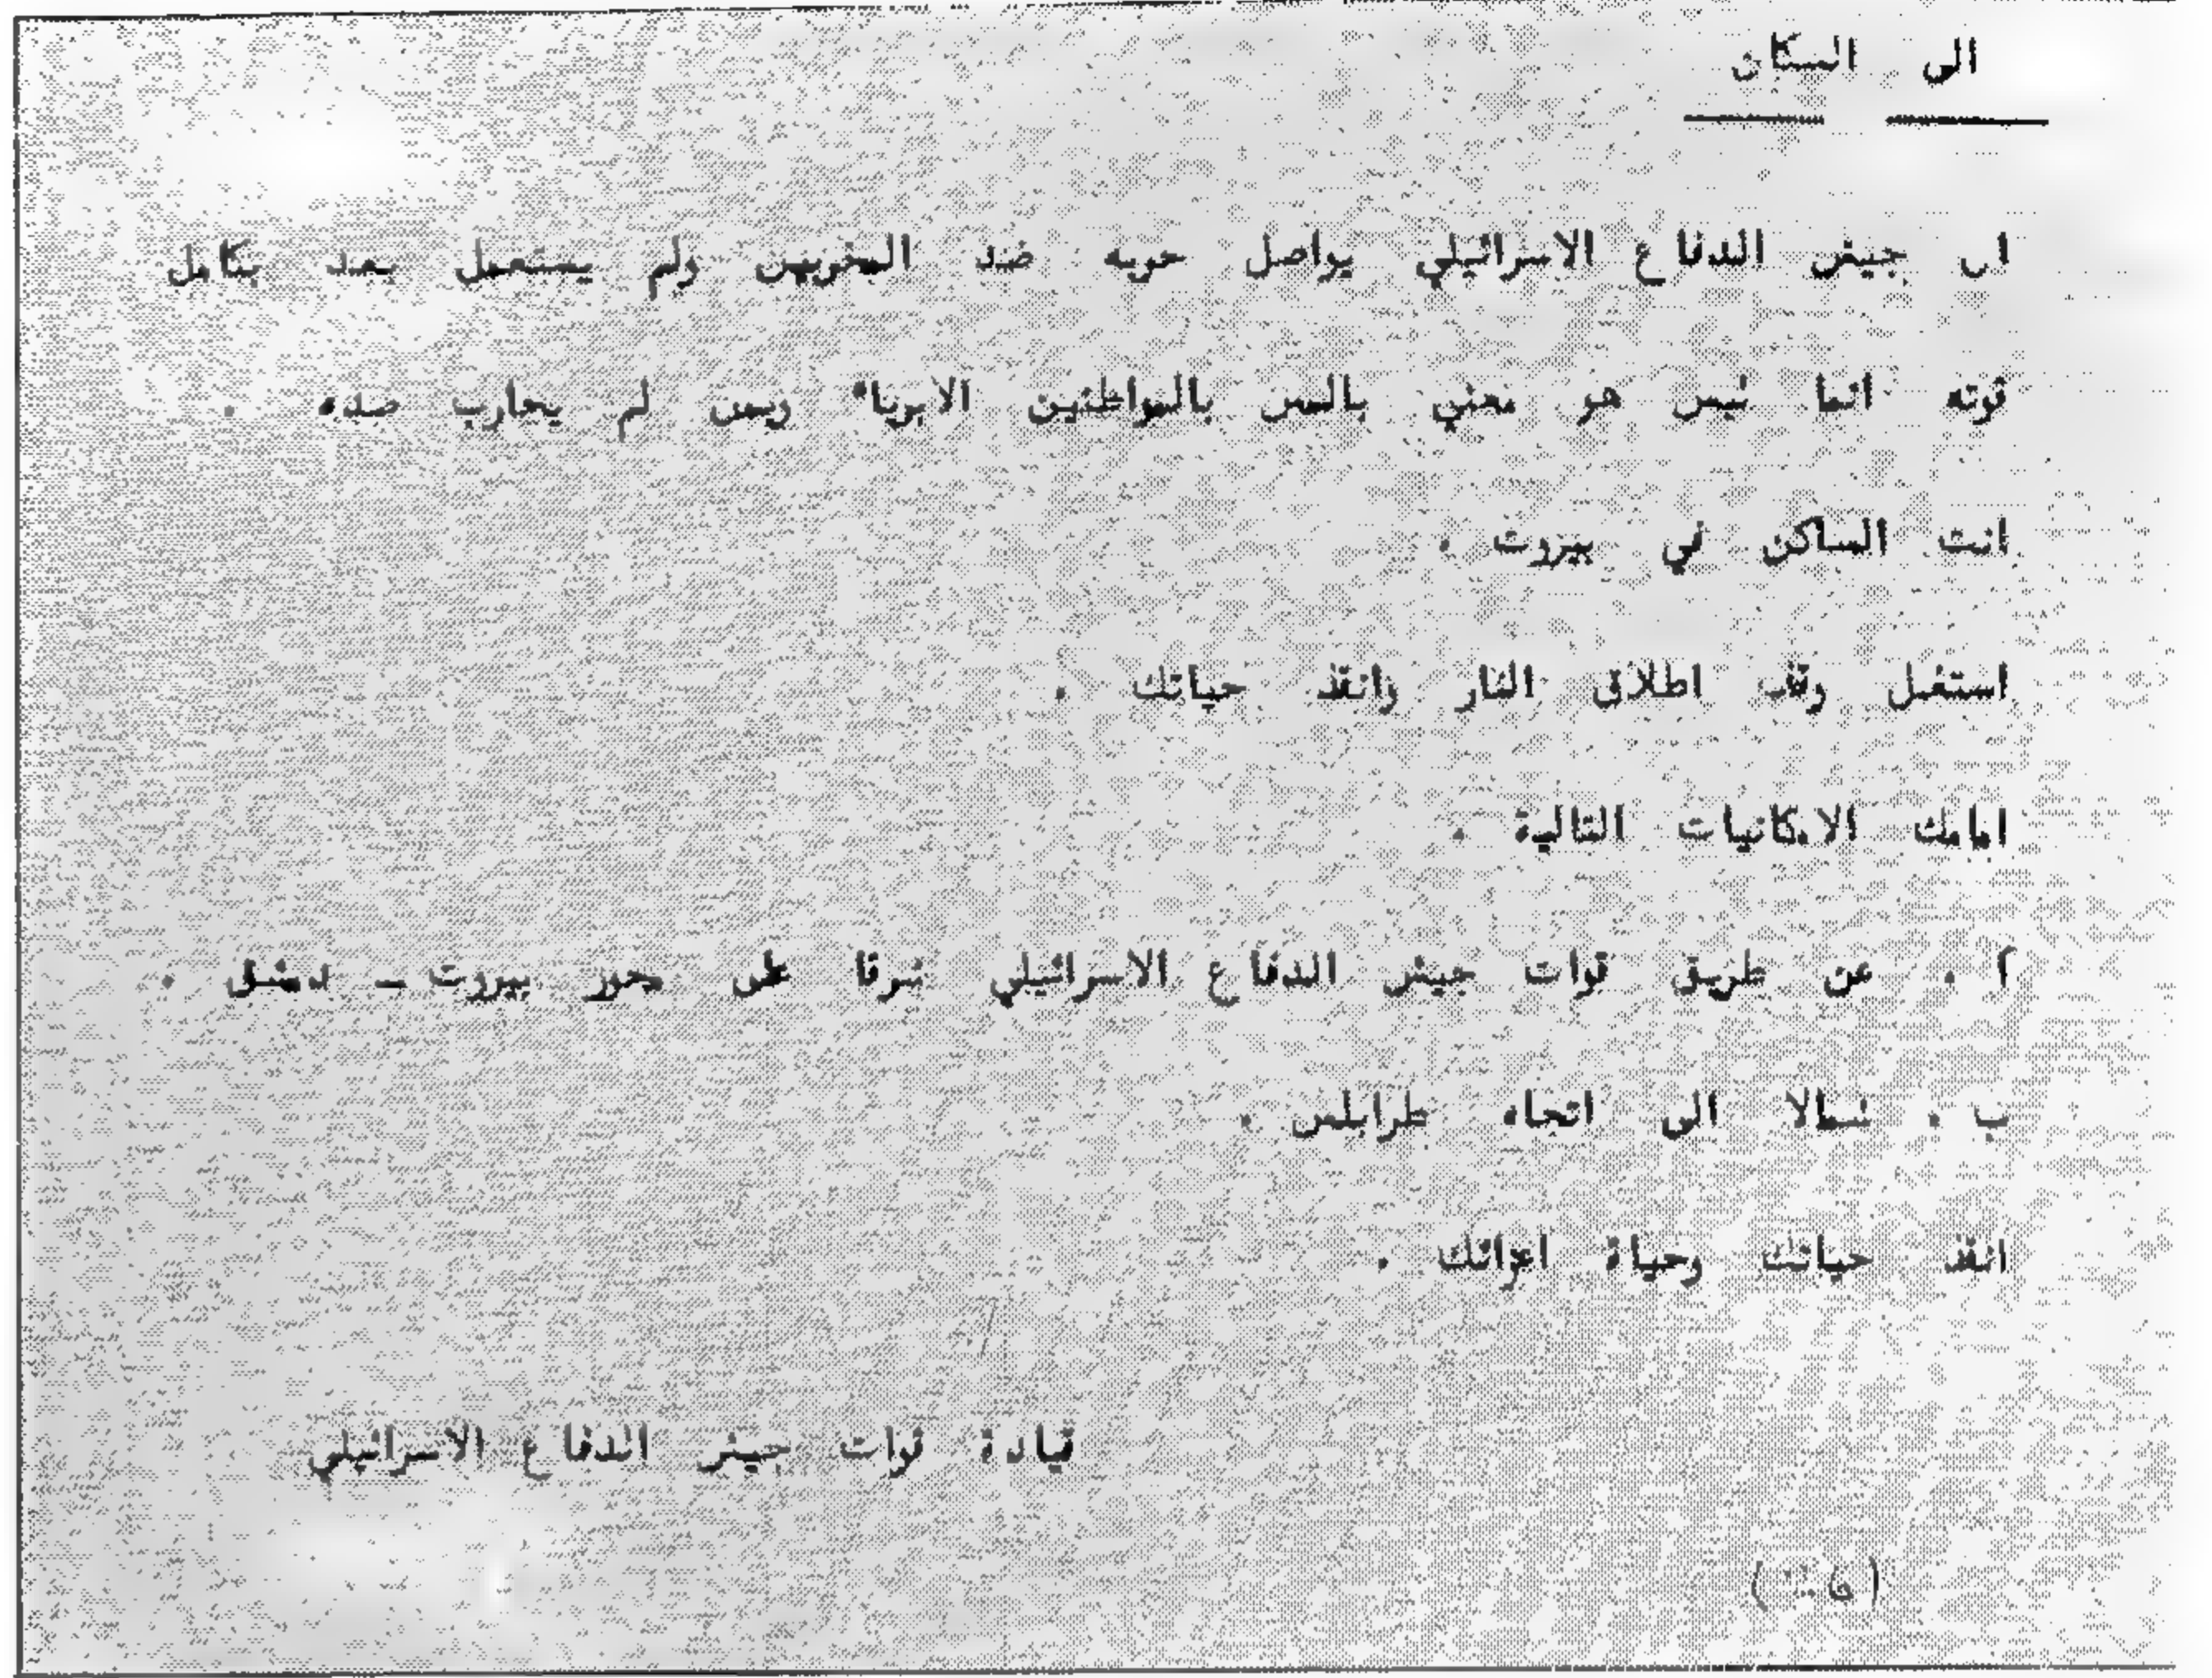 الى السكان
ان جيش الدفاع الاسرائيلي يواصل حربه ضد المخربين ولم يستعمل بعد بكامل
قوته انما ليس هو معني بالمس بالمواطنين الابرياء وبمن لم يحارب ضده .
انت الساكن في بيروت .
استغل وقف اطلاق النار وانقذ حياتك .
امامك الامكانيات التالية .
أ . عن طريق قوات جيش الدفاع الاسرائيلي شرقا على محور بيروت - دمشق .
ب . شمالا الى اتجاه طرابلس .
انقذ حياتك وحياة اعزائك .
قيادة قوات جيش الدفاع الاسرائيلي